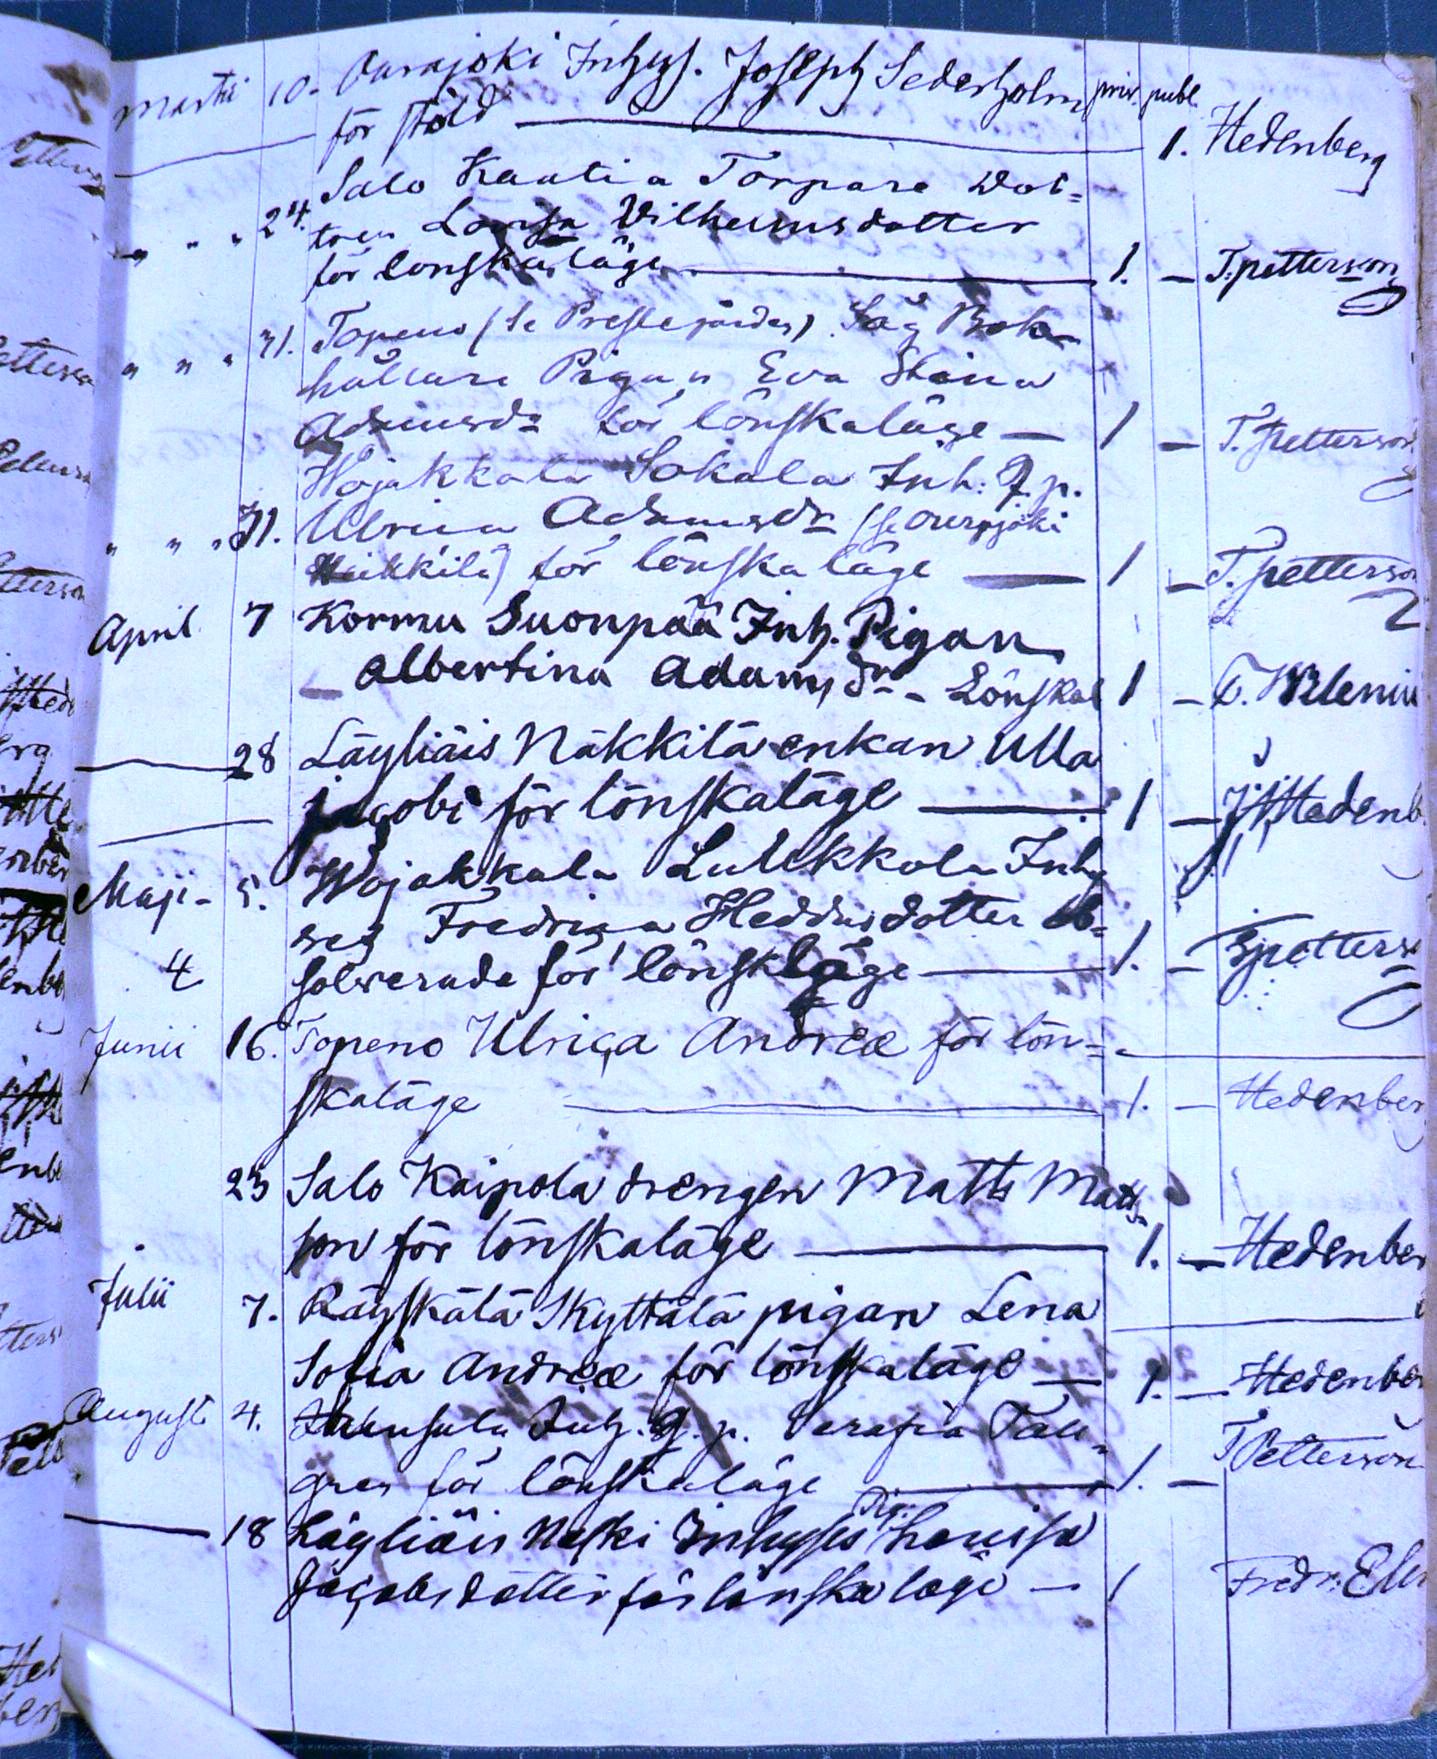 Martii 10. Ourajoki Inhys. Joseph Sederholm priv. publ.
för stöld 1. Hedenberg
Salo Kaatia Torpare Dot=
" " " 24. tren Lovisa Vilhelmsdotter
för lönskaläge 1. — T. petterson
" " " 31. Topeno (Se Prestegården) Såg Bok
hållare Pigan Eva Stina
Adamsdr för lönskaläge — 1 — T. petterson
Wojakkala Sokala Inh: Q. p.
" " " 31. Ulrica Adamsdr (Se Ourajoki
Heikkilä) för lönskaläge 1 — T. petterson
April 7 Kormu Suonpää Inh. Pigan
Albertina Adamsdr - Lönskal 1 —
28 Läyliäis Näkkilä enkan Ulla
Jacobi för lönskaläge 1 — Hedenb
Maji - 5. Wojakkala Lulekkola Inhy
ses Fredrika Heddasdotter ab=
4 solverade för lönskläge 1. — petterso
Junii 16. Topeno Ulrica Andreæ för lön=
skaläge 1. — Hedenber
23 Salo Kaipola drengen Matts Matts
son för lönskaläge 1. — Hedenber
Julii 7. Räyskälä Skyttälä pigan Lena
Sofia Andreæ för lönskaläge 1. — Hedenbe
Augusti 4. Inh. Q. p. Serafia Tall=
gren för lönskaläge 1. — T Petterson
Pig.
18 Läyliäis Naski Inhyses Lovisa
Jacobsdotter för lönskaläge — 1 Fredr: